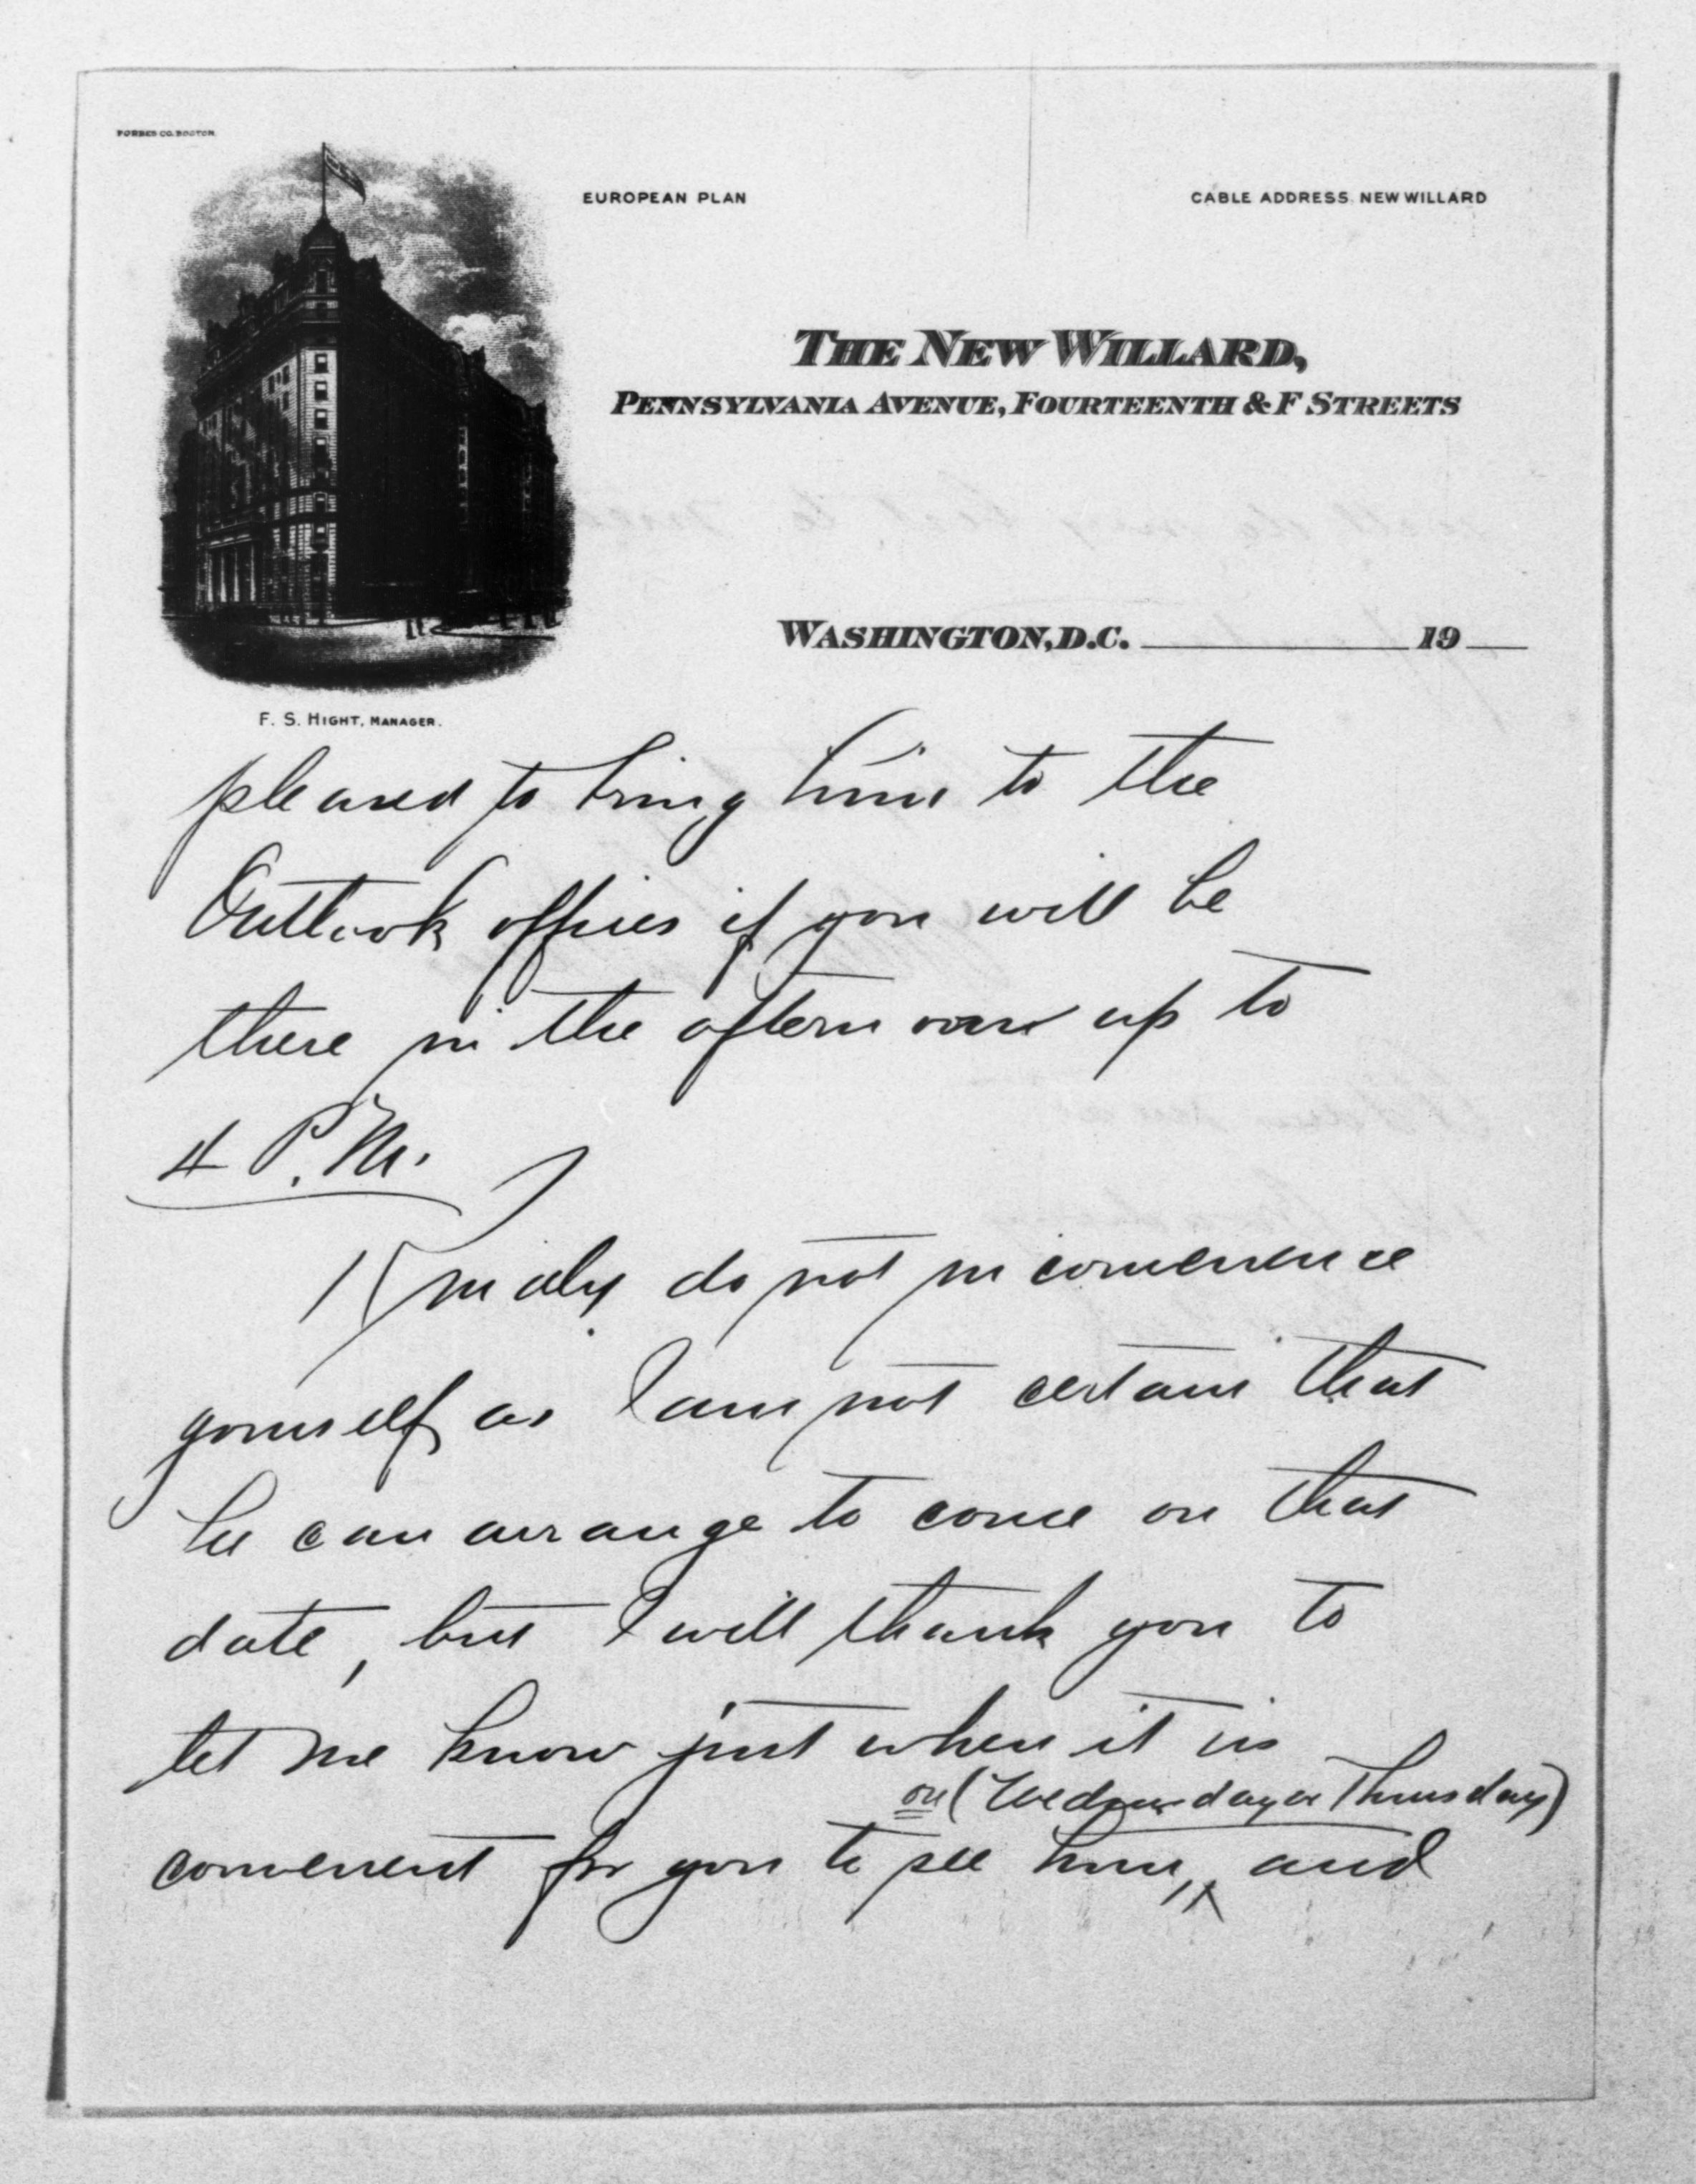 FORBES CO. BOSTON.
EUROPEAN PLAN
CABLE ADDRESS. NEW WILLARD
THE NEW WILLARD,
PENNSYLVANIA AVENUE, FOURTEENTH & F STREETS
WASHINGTON, D.C. 19
F. S. HIGHT, MANAGER.
pleased to bring him to the
Outlook offices if you will be
there in the afternoon up to
4 P.M.
Kindly do not inconvenience
yourself as I am not certain that
he can arrange to come on that
date, but I will thank you to
let me know just when it is
on (Wednesday or Thursday)
convenient for you to see him, and